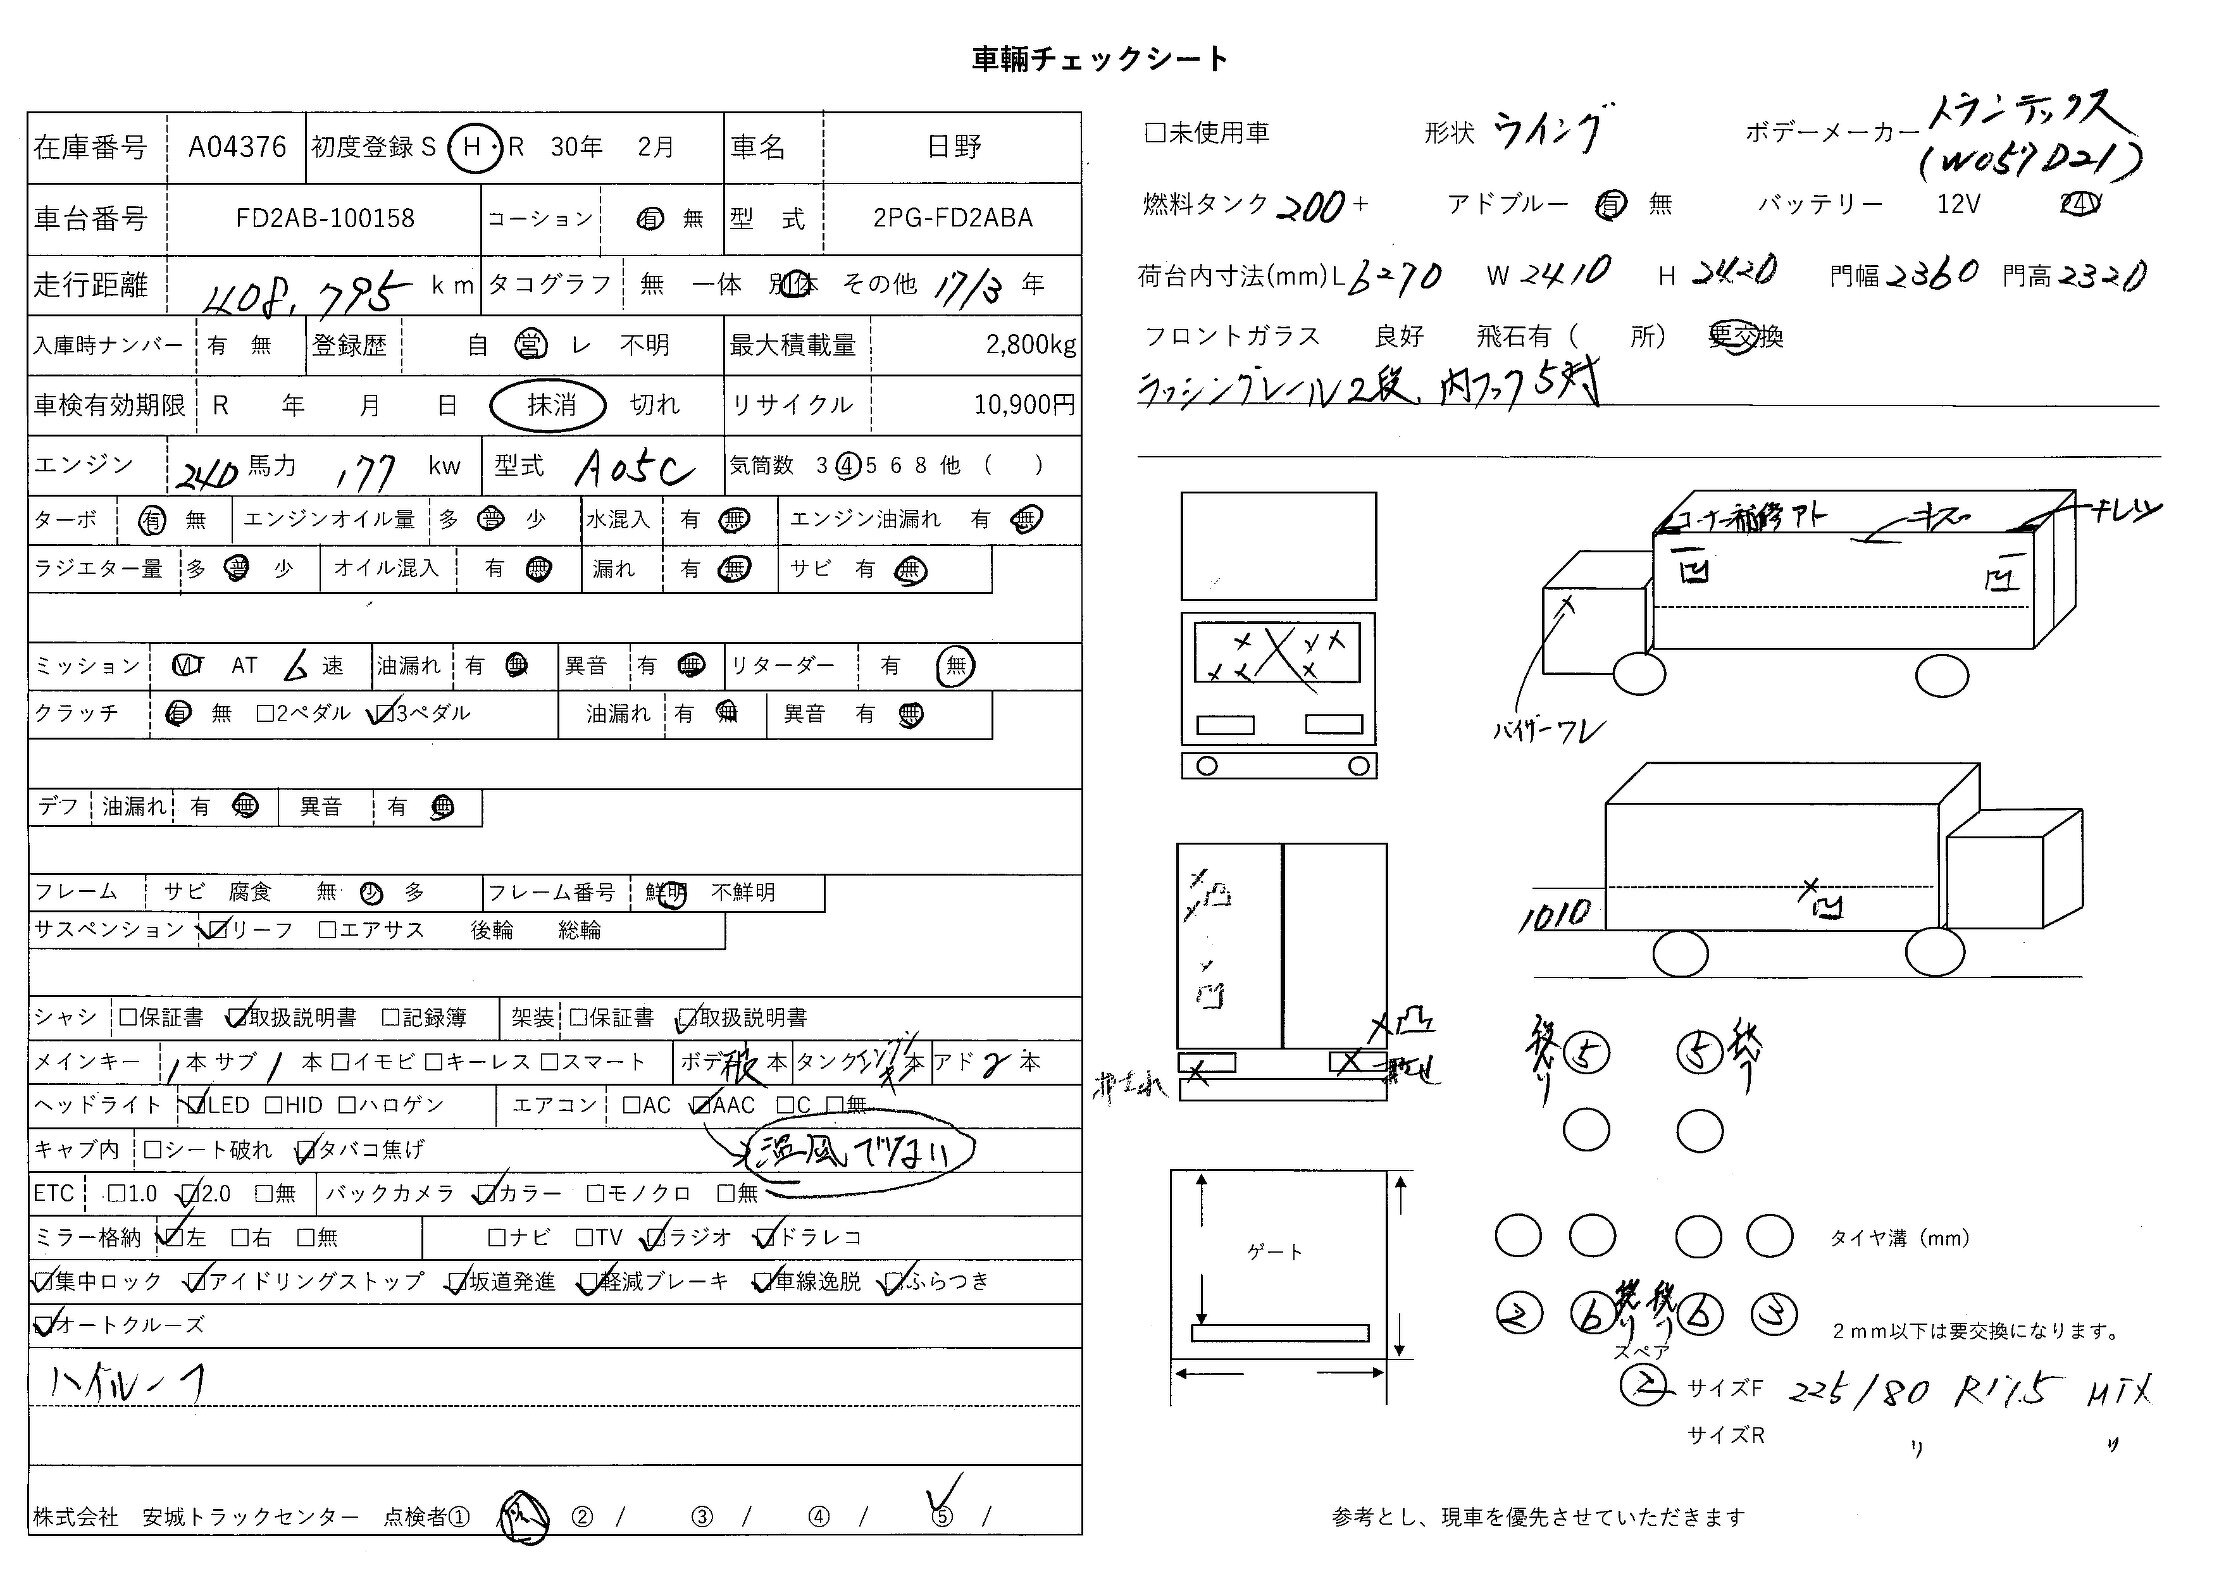 車輛チェックシート
在庫番号 A04376 初度登録 S ・ H ・ R 30年 2月 車名 日野
車台番号 FD2AB-100158 コーション 有 無 型 式 2PG-FD2ABA
走行距離 408,795 km タコグラフ 無 一体 別体 その他 17/3 年
入庫時ナンバー 有 無 登録歴 自 営 レ 不明 最大積載量 2,800kg
車検有効期限 R 年 月 日 抹消 切れ リサイクル 10,900円
エンジン 240 馬力 177 kw 型式 A05C 気筒数 3 4 5 6 8 他 ( )
ターボ 有 無 エンジンオイル量 多 普 少 水混入 有 無 エンジン油漏れ 有 無
ラジエター量 多 普 少 オイル混入 有 無 漏れ 有 無 サビ 有 無
ミッション MT AT 6 速 油漏れ 有 無 異音 有 無 リターダー 有 無
クラッチ 有 無 □2ペダル ☑3ペダル 油漏れ 有 無 異音 有 無
デフ 油漏れ 有 無 異音 有 無
フレーム サビ 腐食 無 少 多 フレーム番号 鮮明 不鮮明
サスペンション ☑リーフ □エアサス 後輪 総輪
シャシ □保証書 ☑取扱説明書 □記録簿 架装 □保証書 ☑取扱説明書
メインキー 1 本 サブ 1 本 □イモビ □キーレス □スマート ボデー 本 タンク 本 アド 2 本
ヘッドライト ☑LED □HID □ハロゲン エアコン □AC ☑AAC □C □無
キャブ内 □シート破れ ☑タバコ焦げ 温風でない
ETC □1.0 ☑2.0 □無 バックカメラ ☑カラー □モノクロ □無
ミラー格納 ☑左 □右 □無 □ナビ □TV ☑ラジオ ☑ドラレコ
☑集中ロック ☑アイドリングストップ ☑坂道発進 ☑軽減ブレーキ ☑車線逸脱 ☑ふらつき
☑オートクルーズ
ハイルーフ
株式会社 安城トラックセンター 点検者① ② / ③ / ④ / ⑤ /
□未使用車 形状 ウイング ボデーメーカー トランテックス
(W057D21)
燃料タンク 200 + アドブルー 有 無 バッテリー 12V 24V
荷台内寸法(mm) L 6270 W 2410 H 2420 門幅 2360 門高 2320
フロントガラス 良好 飛石有 ( 所) 要交換
ラッシングレール2段、内フック5対
コーナー補修アト キズ キレツ
凹 凹
バイザーワレ
凸
凹
1010
凹
凸
5 5
ゲート
タイヤ溝 (mm)
2 6 6 3
2mm以下は要交換になります。
スペア
2 サイズF 225/80 R17.5 MIX
サイズR 〃 〃
参考とし、現車を優先させていただきます